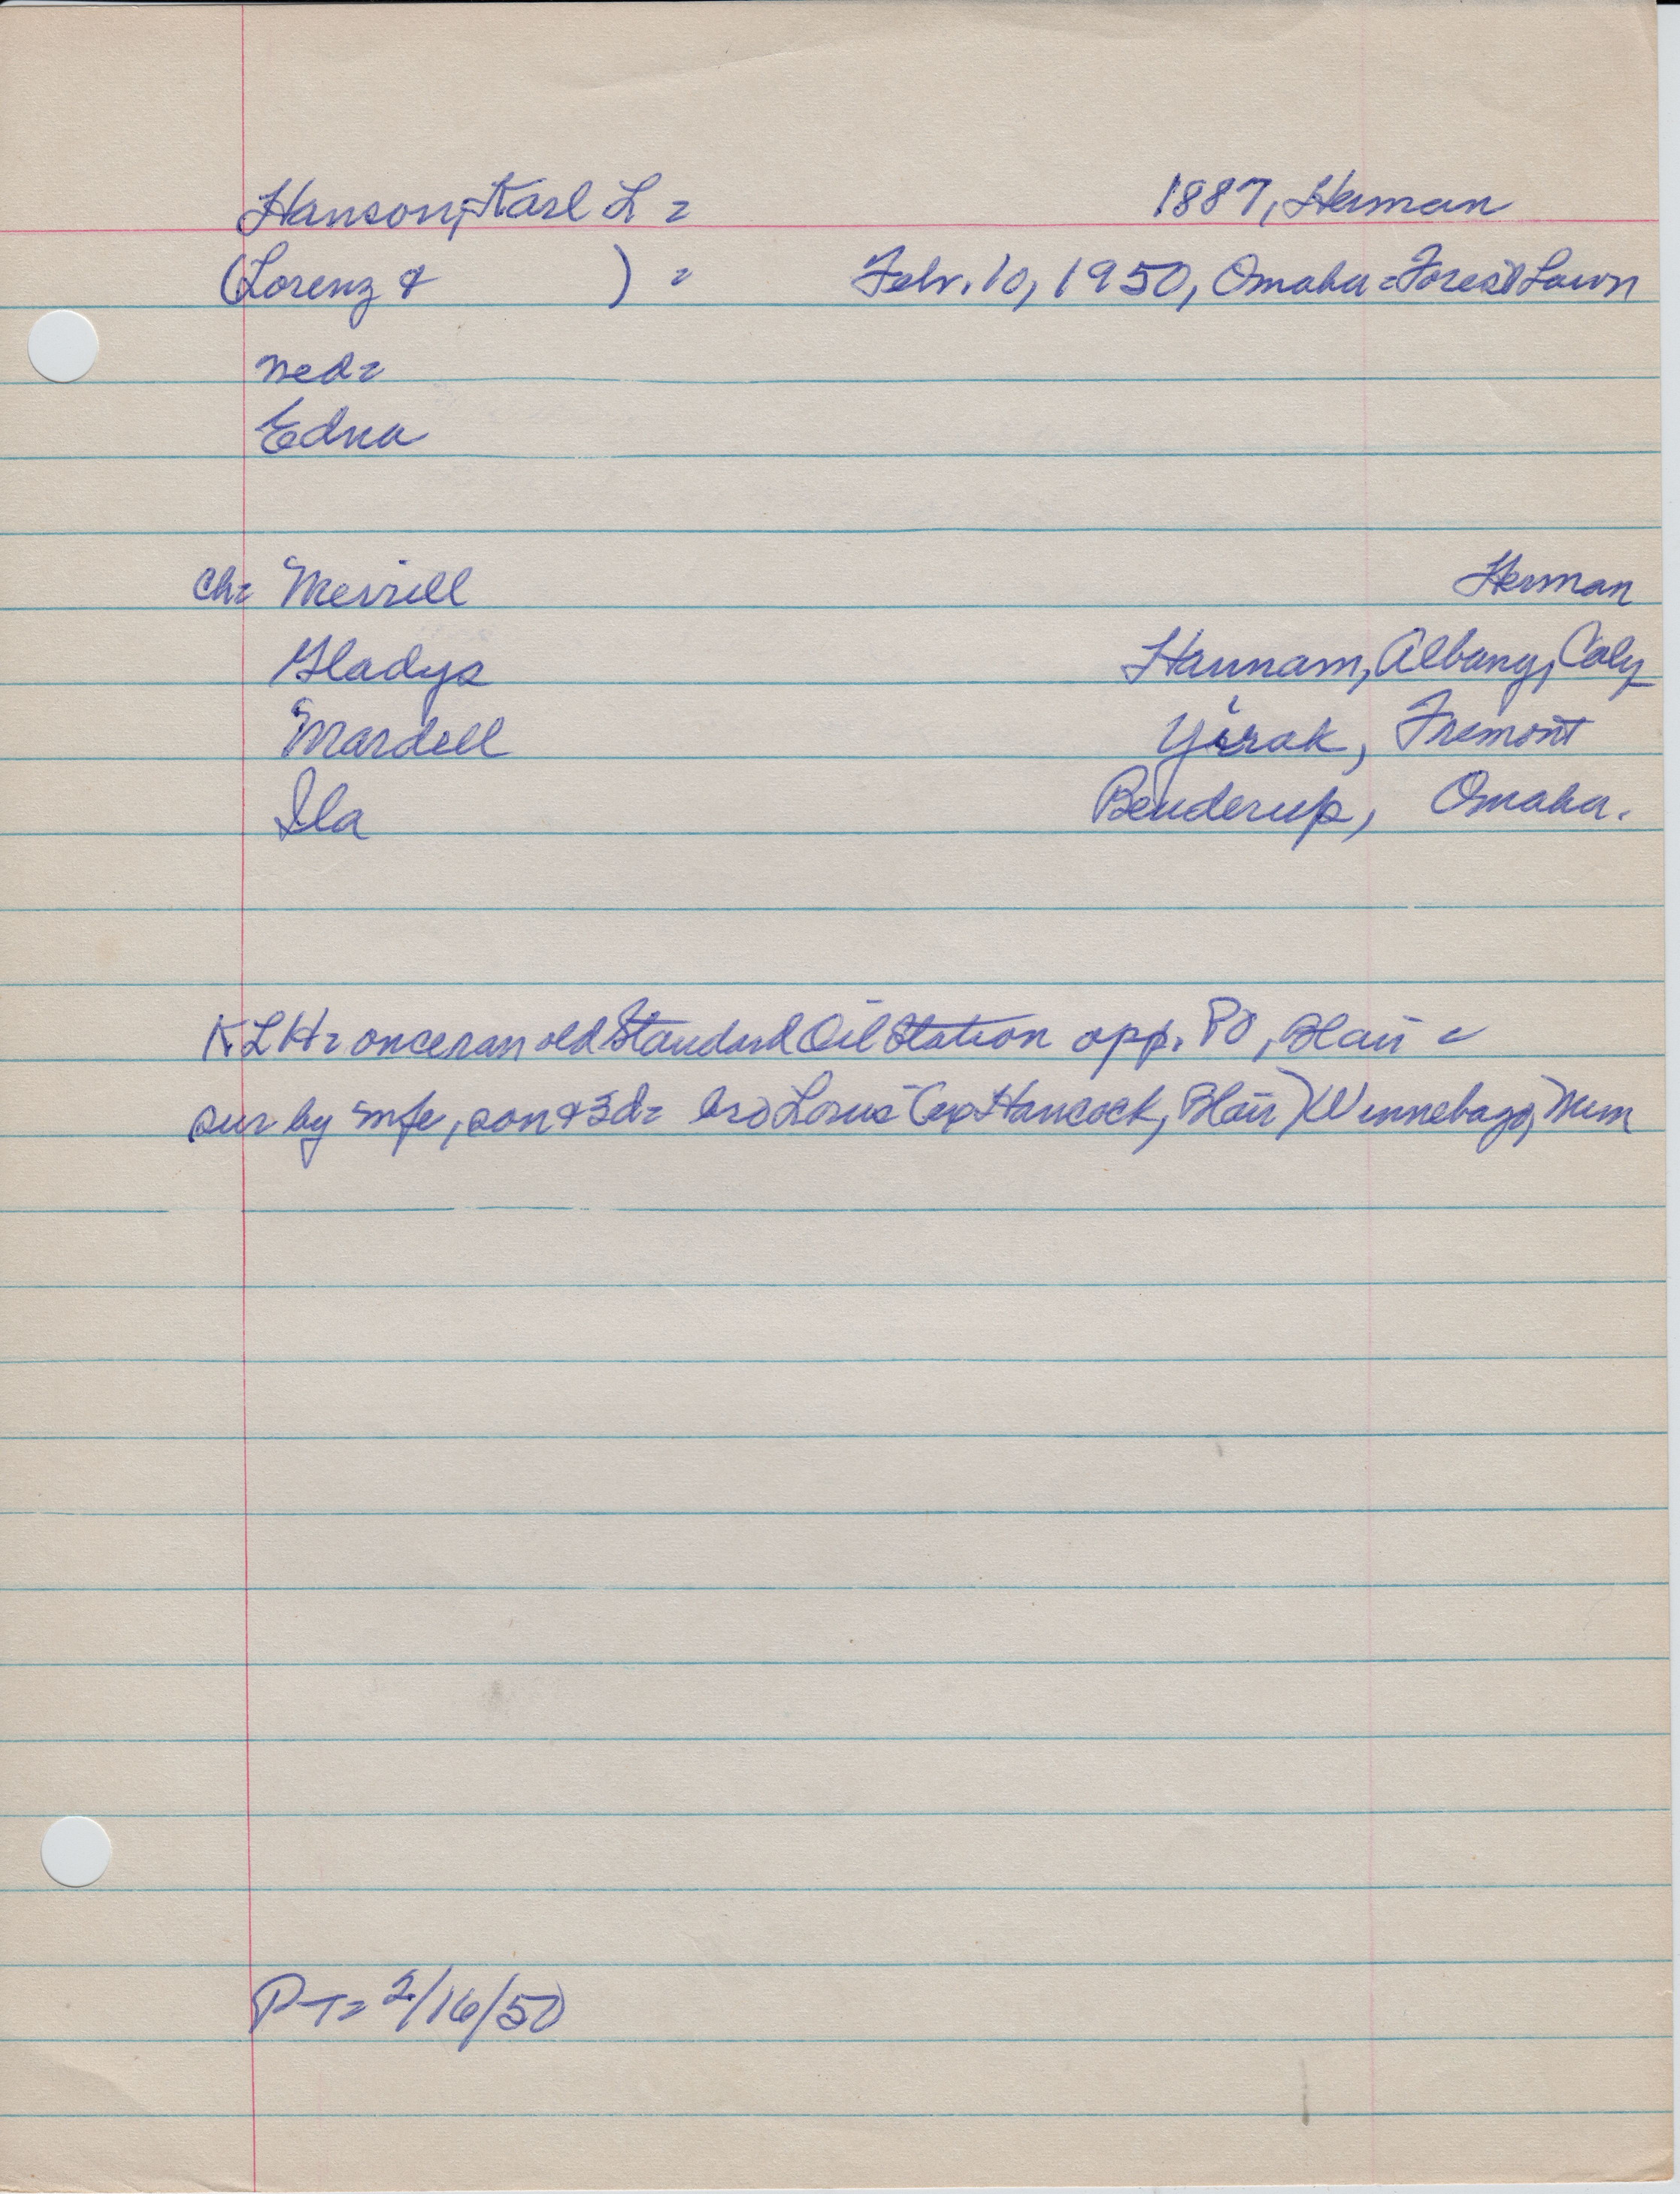 Hanson, Karl L = 1887, Herman
(Lorenz & ) = Febr. 10, 1950, Omaha = Forest Lawn
med =
Edna
Ch = Merrill Herman
Gladys Hannam, Albany, Calif
Mardell Yirak, Fremont
Ila Benderup, Omaha.
KLH = once ran old Standard Oil Station opp. PO, Blair =
sur by wife, son & 3d = bro Lorus (op Hancock, Blair) Winnebago, Minn
PT = 2/16/50